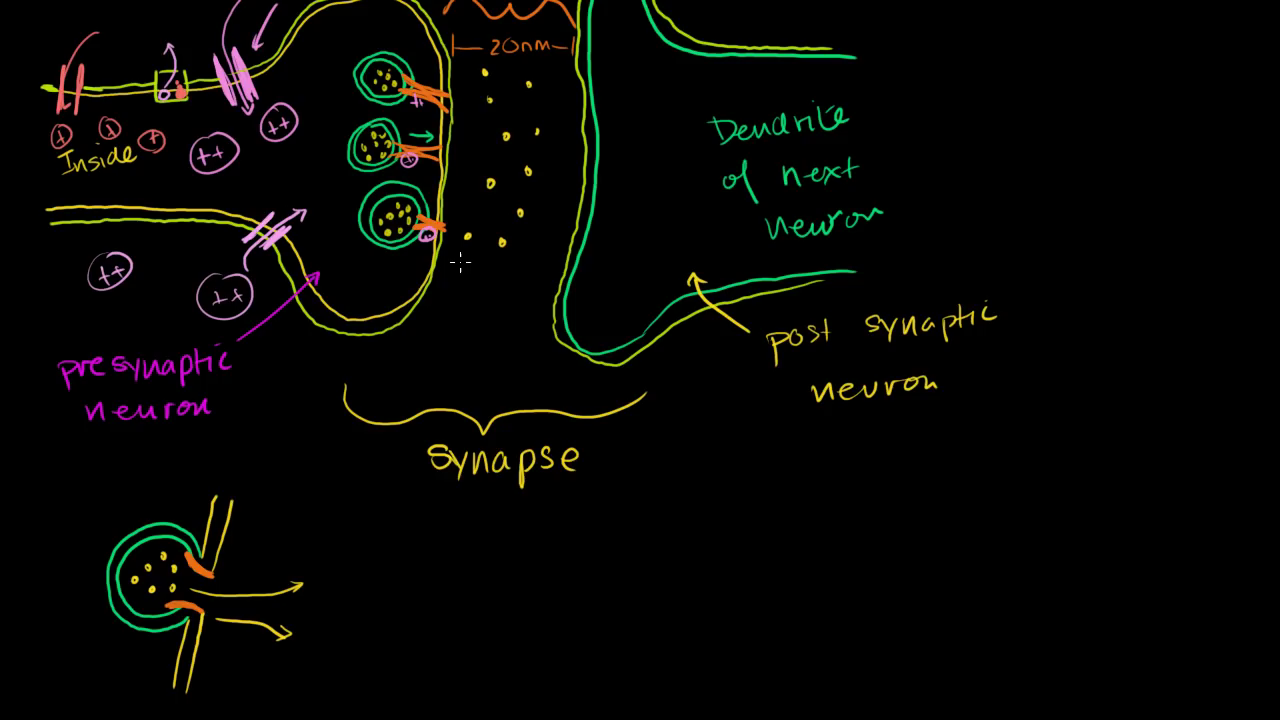 20nm
+
+
+
++
++
Inside
Dendrite
of next
neuron
++
++
presynaptic
neuron
post synaptic
neuron
synapse